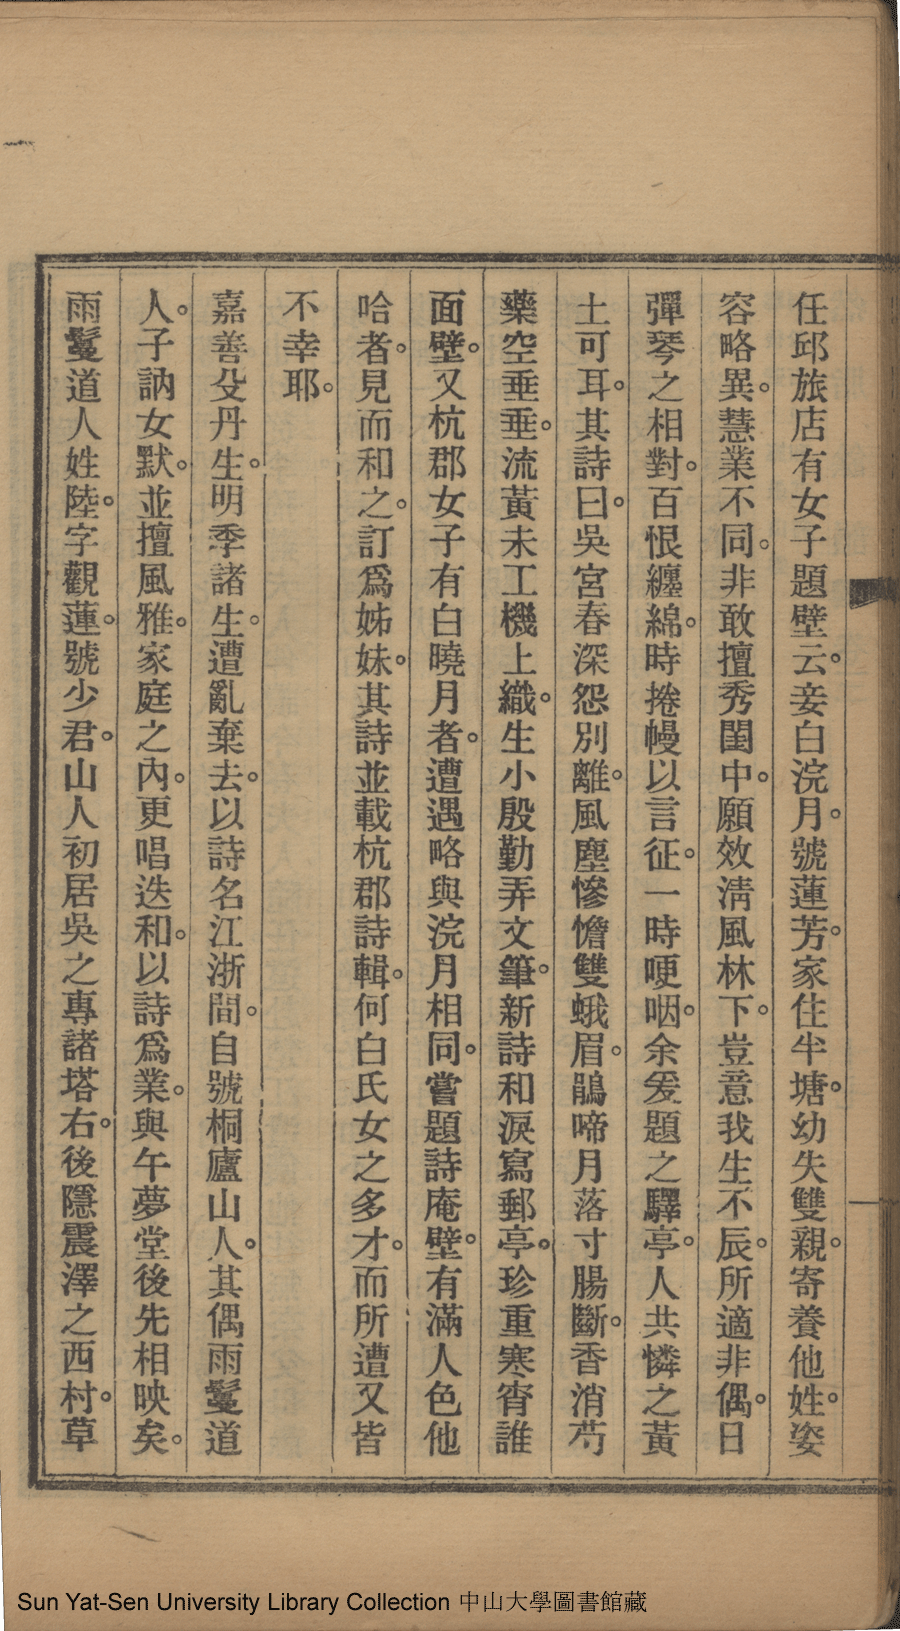 任邱旅店有女子題壁云。妾白浣月。號蓮芳。家住半塘。幼失雙親。寄養他姓。姿
容略異。慧業不同。非敢擅秀閨中。願效淸風林下。豈意我生不辰。所適非偶。日
彈琴之相對。百恨纏綿。時捲幔以言征。一時哽咽。余爰題之驛亭。人共憐之黃
土可耳。其詩曰。吳宮春深怨別離。風塵慘憺雙蛾眉。鵑啼月落寸腸斷。香消芍
藥空垂垂。流黃未工機上織。生小殷勤弄文筆。新詩和淚寫郵亭。珍重寒宵誰
面壁。又杭郡女子有白曉月者。遭遇略與浣月相同。嘗題詩庵壁。有滿人色他
哈者。見而和之。訂爲姊妹。其詩並載杭郡詩輯。何白氏女之多才。而所遭又皆
不幸耶。
嘉善殳丹生。明季諸生。遭亂棄去。以詩名江浙間。自號桐廬山人。其偶雨鬘道
人。子訥女默。並擅風雅。家庭之內。更唱迭和。以詩爲業。與午夢堂後先相映矣。
雨鬘道人姓陸。字觀蓮。號少君。山人初居吳之專諸塔右。後隱震澤之西村。草
Sun Yat-Sen University Library Collection 中山大學圖書館藏